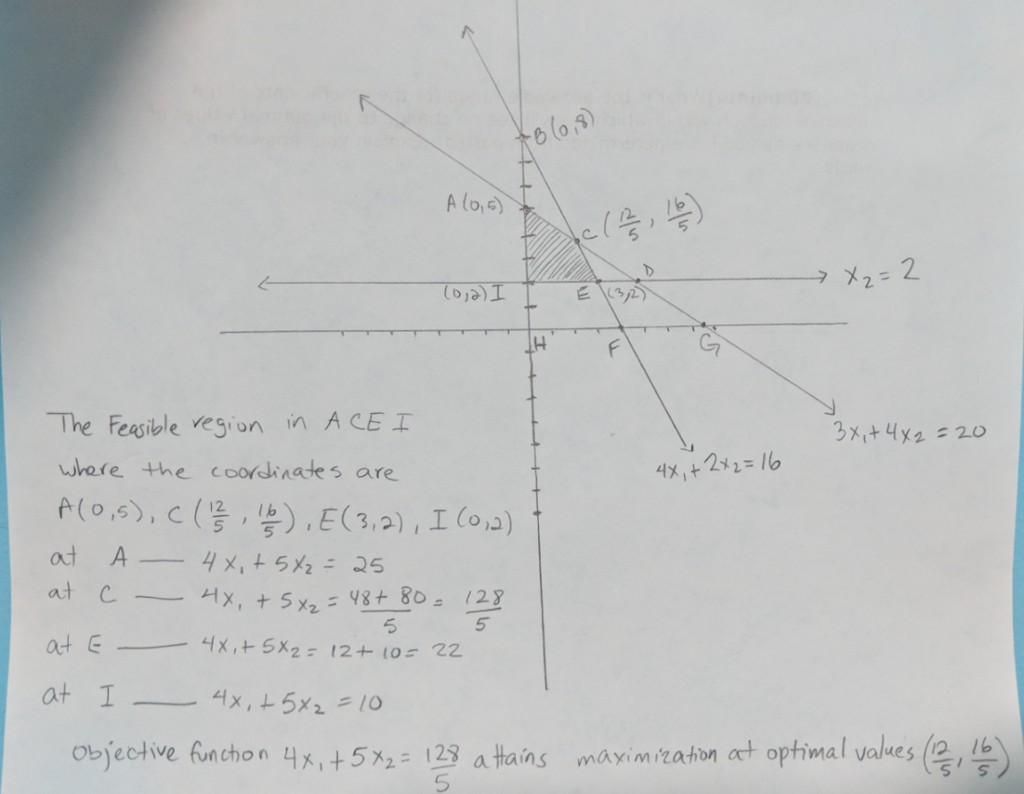 B(0,8)
A(0,5)
C(12/5, 16/5)
D
x₂ = 2
(0,2) I
E (3,2)
H
F
G
3x₁+4x₂ = 20
4x₁+2x₂=16
The Feasible region in ACEI
where the coordinates are
A(0,5), C(12/5, 16/5), E(3,2), I(0,2)
at A — 4x₁+5x₂ = 25
at C — 4x₁+5x₂ = 48+80/5 = 128/5
at E — 4x₁+5x₂ = 12+10= 22
at I — 4x₁+5x₂ = 10
Objective function 4x₁+5x₂= 128/5 attains maximization at optimal values (12/5, 16/5)